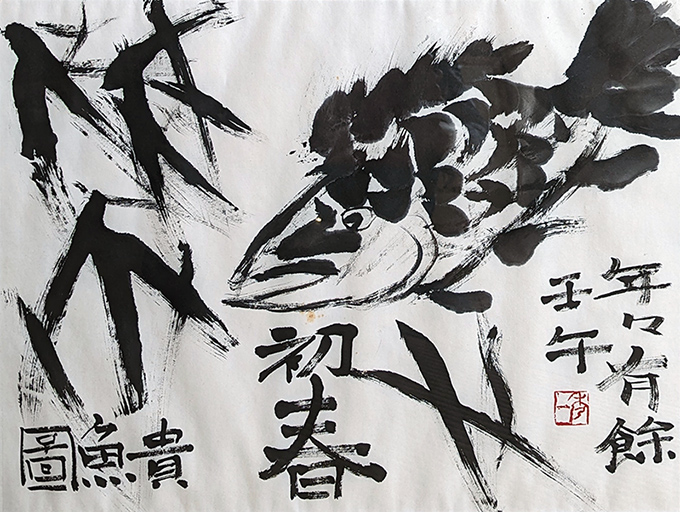 年々有餘
壬午
初春
貴魚圖